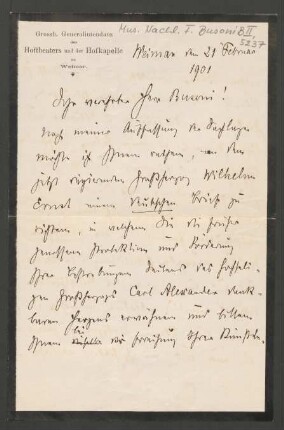 Mus. Nachl. F. Busoni B II, 5237
Grossh. Generalintendanz
des
Hoftheaters und der Hofkapelle
zu
Weimar.
Weimar den 21 Februar
1901
Sehr verehrter Herr Busoni!
Nach meiner Auffassung der Sachlage
möchte ich Ihnen rathen, an den
jetzt regierenden Großherzog Wilhelm
Ernst einen deutschen Brief zu
richten, in welchem Sie die früher
genossene Protektion und Förderung
Ihrer Bestrebungen seitens des hochseli-
gen Großherzogs Carl Alexander dank-
baren Herzens erwähnen und bitten
Ihnen bei Ihre Künstle-